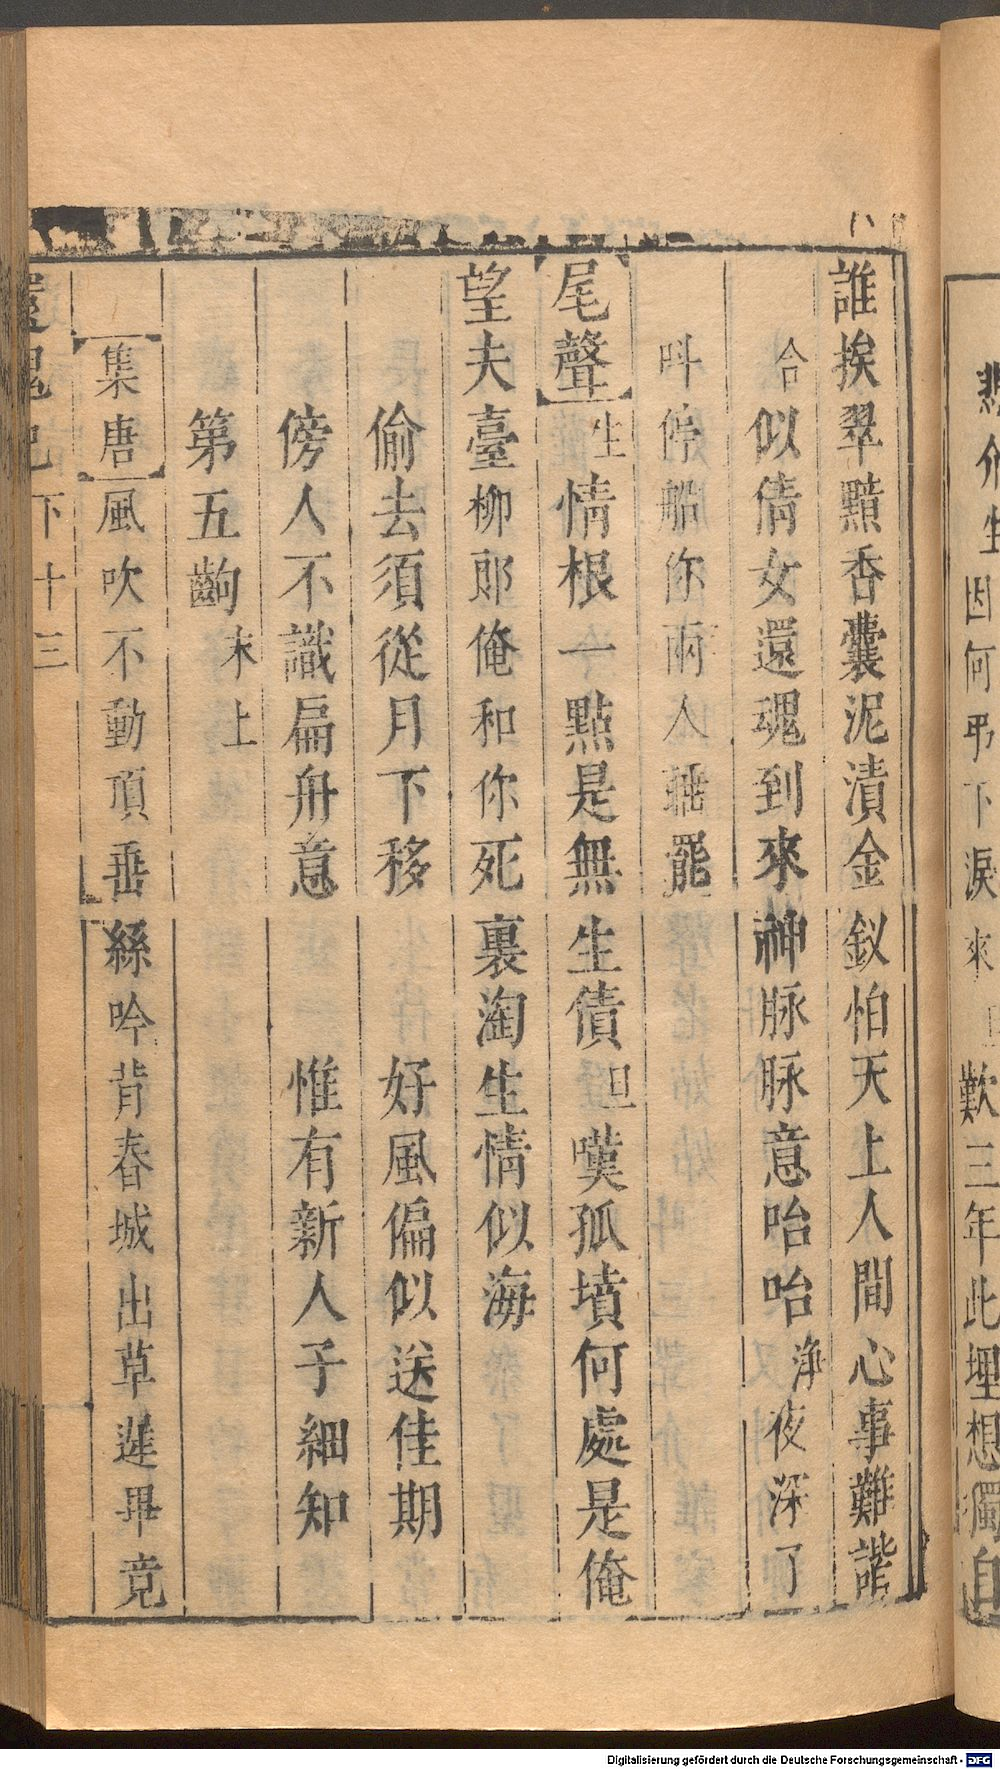 悲介生因何弔下淚來旦歎三年此埋想獨自
誰挨翠黯香囊泥漬金釵怕天上人間心事難諧
合似倩女還魂到來神脉脉意咍咍淨夜深了
呌停船你兩人睡罷
尾聲生情根一點是無生債旦嘆孤墳何處是俺
望夫臺柳郎俺和你死裏淘生情似海
偷去須從月下移 好風偏似送佳期
傍人不識扁舟意 惟有新人子細知
第五齣末上
集唐風吹不動頂垂絲吟背春城出草遲畢竟
還魂記 下 十三
Digitalisierung gefördert durch die Deutsche Forschungsgemeinschaft - DFG